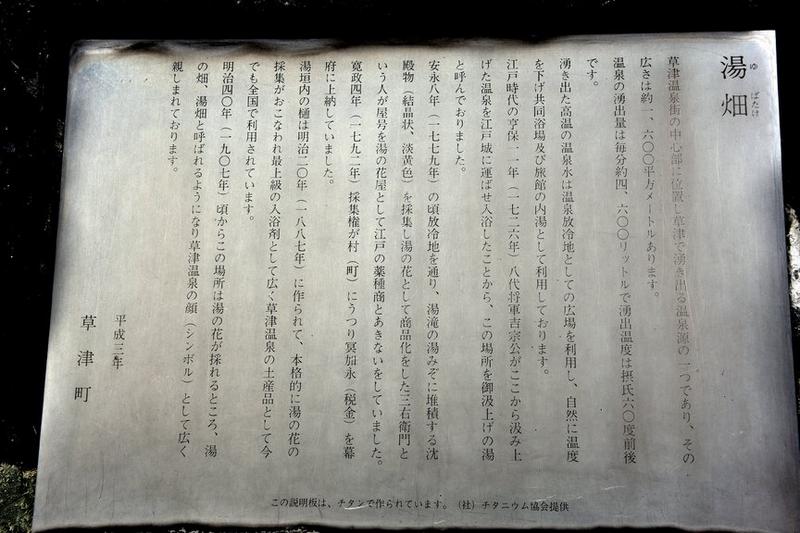 湯畑
ゆ ばたけ
草津温泉街の中心部に位置し草津で湧き出る温泉源の一つであり、その
広さは約一、六〇〇平方メートルあります。
温泉の湧出量は毎分約四、六〇〇リットルで湧出温度は摂氏六〇度前後
です。
湧き出た高温の温泉水は温泉放冷地としての広場を利用し、自然に温度
を下げ共同浴場及び旅館の内湯として利用しております。
江戸時代の享保一一年（一七二六年）八代将軍吉宗公がここから汲み上
げた温泉を江戸城に運ばせ入浴したことから、この場所を御汲上げの湯
と呼んでおりました。
安永八年（一七七九年）の頃放冷地を通り、湯滝の湯みぞに堆積する沈
殿物（結晶状、淡黄色）を採集し湯の花として商品化をした三右衛門と
いう人が屋号を湯の花屋として江戸の薬種商とあきないをしていました。
寛政四年（一七九二年）採集権が村（町）にうつり冥加永（税金）を幕
府に上納していました。
湯垣内の樋は明治二〇年（一八八七年）に作られて、本格的に湯の花の
採集がおこなわれ最上級の入浴剤として広く草津温泉の土産品として今
でも全国で利用されています。
明治四〇年（一九〇七年）頃からこの場所は湯の花が採れるところ、湯
の畑、湯畑と呼ばれるようになり草津温泉の顔（シンボル）として広く
親しまれております。
平成三年
草津町
この説明板は、チタンで作られています。（社）チタニウム協会提供